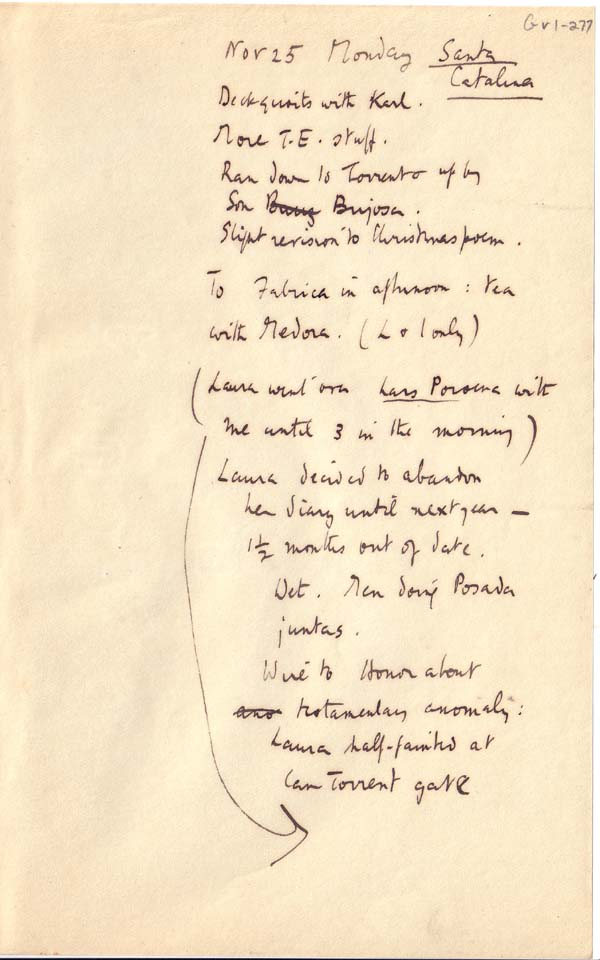 Gv1-277
Nov 25 Monday Santa
Catalina
Deck quoits with Karl.
More T.E. stuff.
Ran down to Torrent & up by
Son Bujosa.
Slight revision to Christmas poem.
To Fabrica in afternoon: tea
with Medora. (L & I only)
(Laura went over Lars Porsena with
me until 3 in the morning)
Laura decided to abandon
her diary until next year —
1½ months out of date.
Wet. Men doing Posada
juntas.
Wire to Honor about
and testamentary anomaly:
Laura half-fainted at
Can Torrent gate